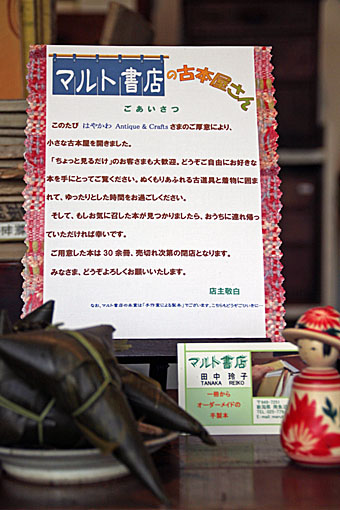 マルト書店の古本屋さん
ごあいさつ
このたび はやかわ Antique & Crafts さまのご厚意により、
小さな古本屋を開きました。
「ちょっと見るだけ」のお客さまも大歓迎。どうぞご自由にお好きな
本を手にとってご覧ください。ぬくもりあふれる古道具と着物に囲ま
れて、ゆったりとした時間をお過ごしください。
そして、もしお気に召した本が見つかりましたら、おうちに連れ帰っ
ていただければ幸いです。
ご用意した本は 30 余冊、売切れ次第の閉店となります。
みなさま、どうぞよろしくお願いいたします。
店主敬白
なお、マルト書店の本業は「手作業による製本」でございます。こちらもどうぞごひいきに…
マルト書店
田中 玲子
TANAKA REIKO
一冊から
オーダーメイドの
手製本